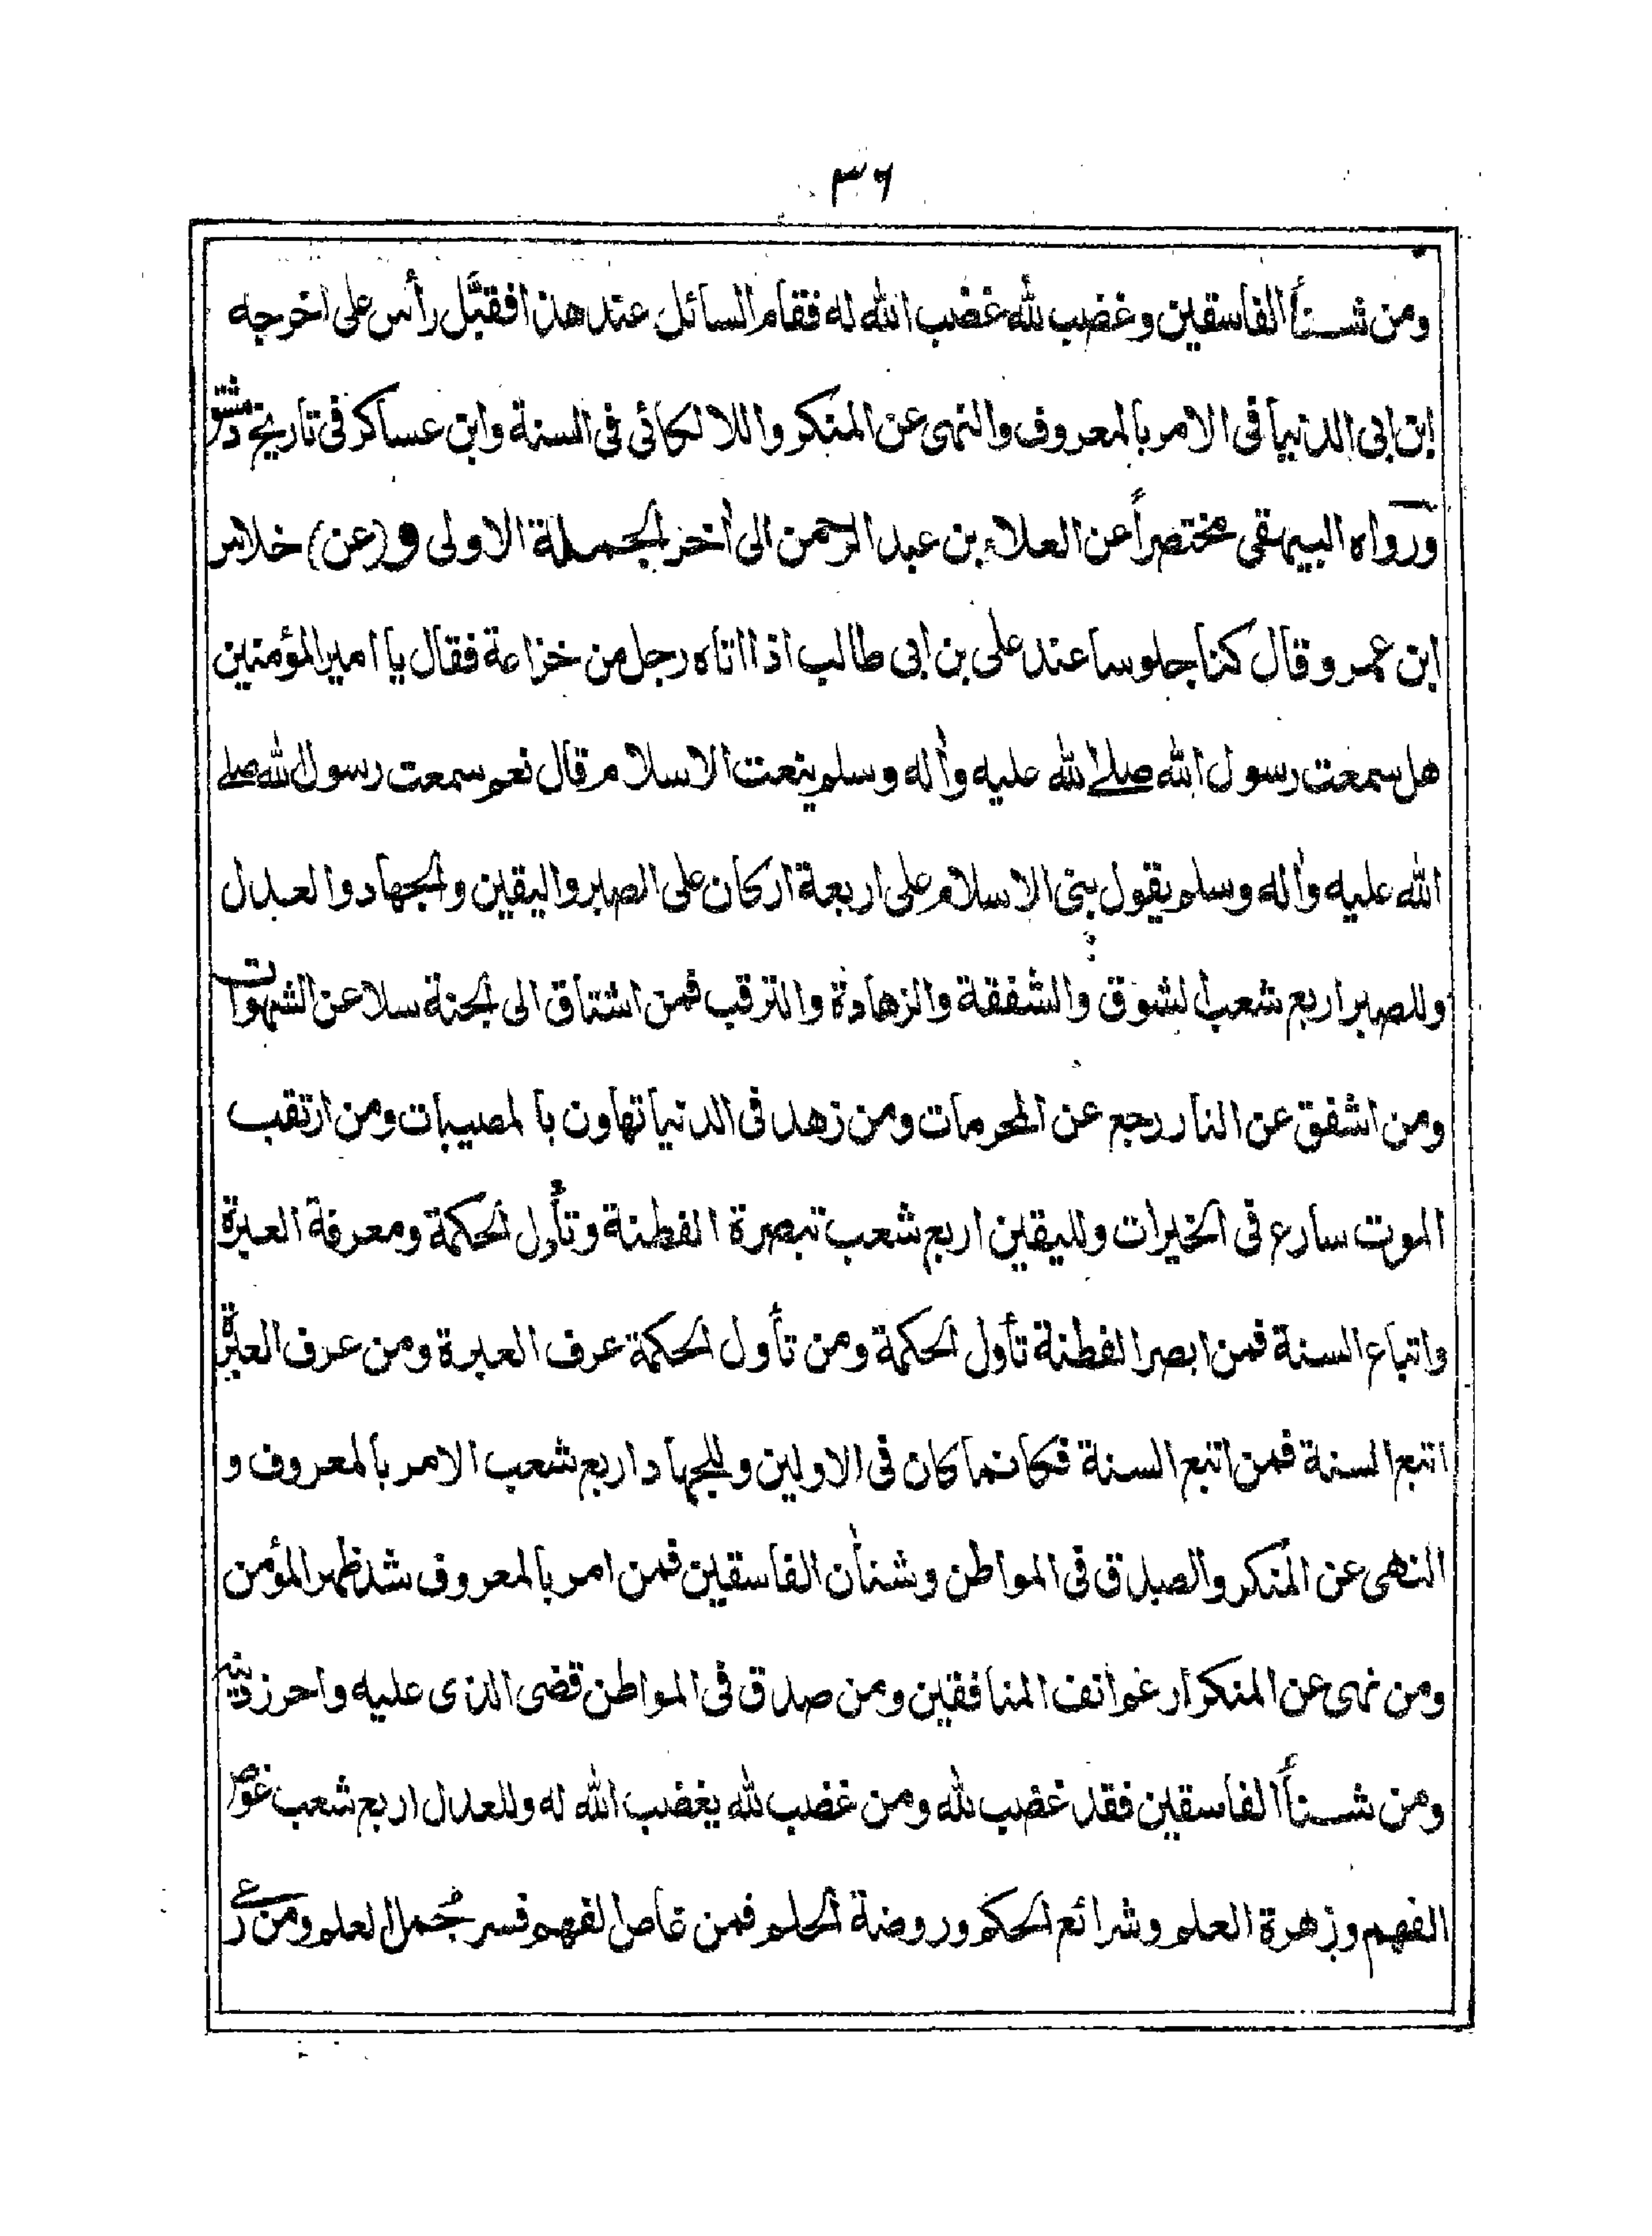 ٣٦
ومن شنأ الفاسقين وغضب لله غضب الله له فقام السائل عند هذا فقبَّل رأس على اخرجه
ابن ابى الدنيا فى الامر بالمعروف والنهى عن المنكر واللالكائى فى السنة وابن عساكر فى تاريخ دمشق
ورواه البيهقى مختصراً عن العلاء بن عبد الرحمن الى أخر الجملة الاولى و (عن) خلاس
ابن عمرو قال كنا جلوسا عند على بن ابى طالب اذا اتاه رجل من خزاعة فقال يا امير المؤمنين
هل سمعت رسول الله صلى الله عليه وأله وسلم ينعت الاسلام قال نعم سمعت رسول الله صلے
الله عليه وأله وسلم يقول بنى الاسلام على اربعة اركان على الصبر واليقين والجهاد والعدل
وللصبر اربع شعب الشوق والشفقة والزهادة والترقب فمن اشتاق الى الجنة سلا عن الشهوات
ومن اشفق عن النار رجع عن المحرمات ومن زهد فى الدنيا تهاون بالمصيبات ومن ارتقب
الموت سارع فى الخيرات ولليقين اربع شعب تبصرة الفطنة وتأول الحكمة ومعرفة العبرة
واتباع السنة فمن ابصر الفطنة تأول الحكمة ومن تأول الحكمة عرف العبرة ومن عرف العبرة
اتبع السنة فمن اتبع السنة فكانما كان فى الاولين وللجهاد اربع شعب الامر بالمعروف و
النهى عن المنكر والصدق فى المواطن وشنأن الفاسقين فمن امر بالمعروف شد ظهر المؤمن
ومن نهى عن المنكر ارغم انف المنافقين ومن صدق فى المواطن قضى الذى عليه واحرز دينه
ومن شنأ الفاسقين فقد غضب لله ومن غضب لله يغضب الله له وللعدل اربع شعب غوص
الفهم وزهرة العلم وشرائع الحكم وروضة الحلم فمن غاص الفهم فسر مُجمل العلم ومن رعى